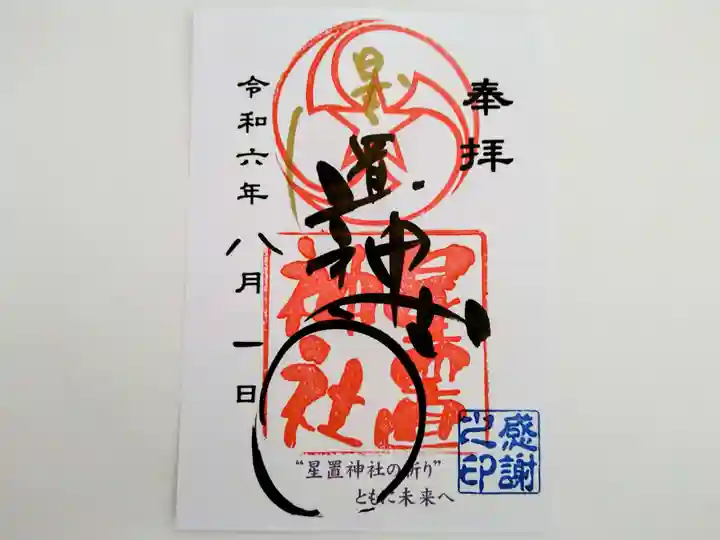 奉拝
星置神社
星置神社
令和六年八月一日
“星置神社の祈り”
ともに未来へ
感謝之印